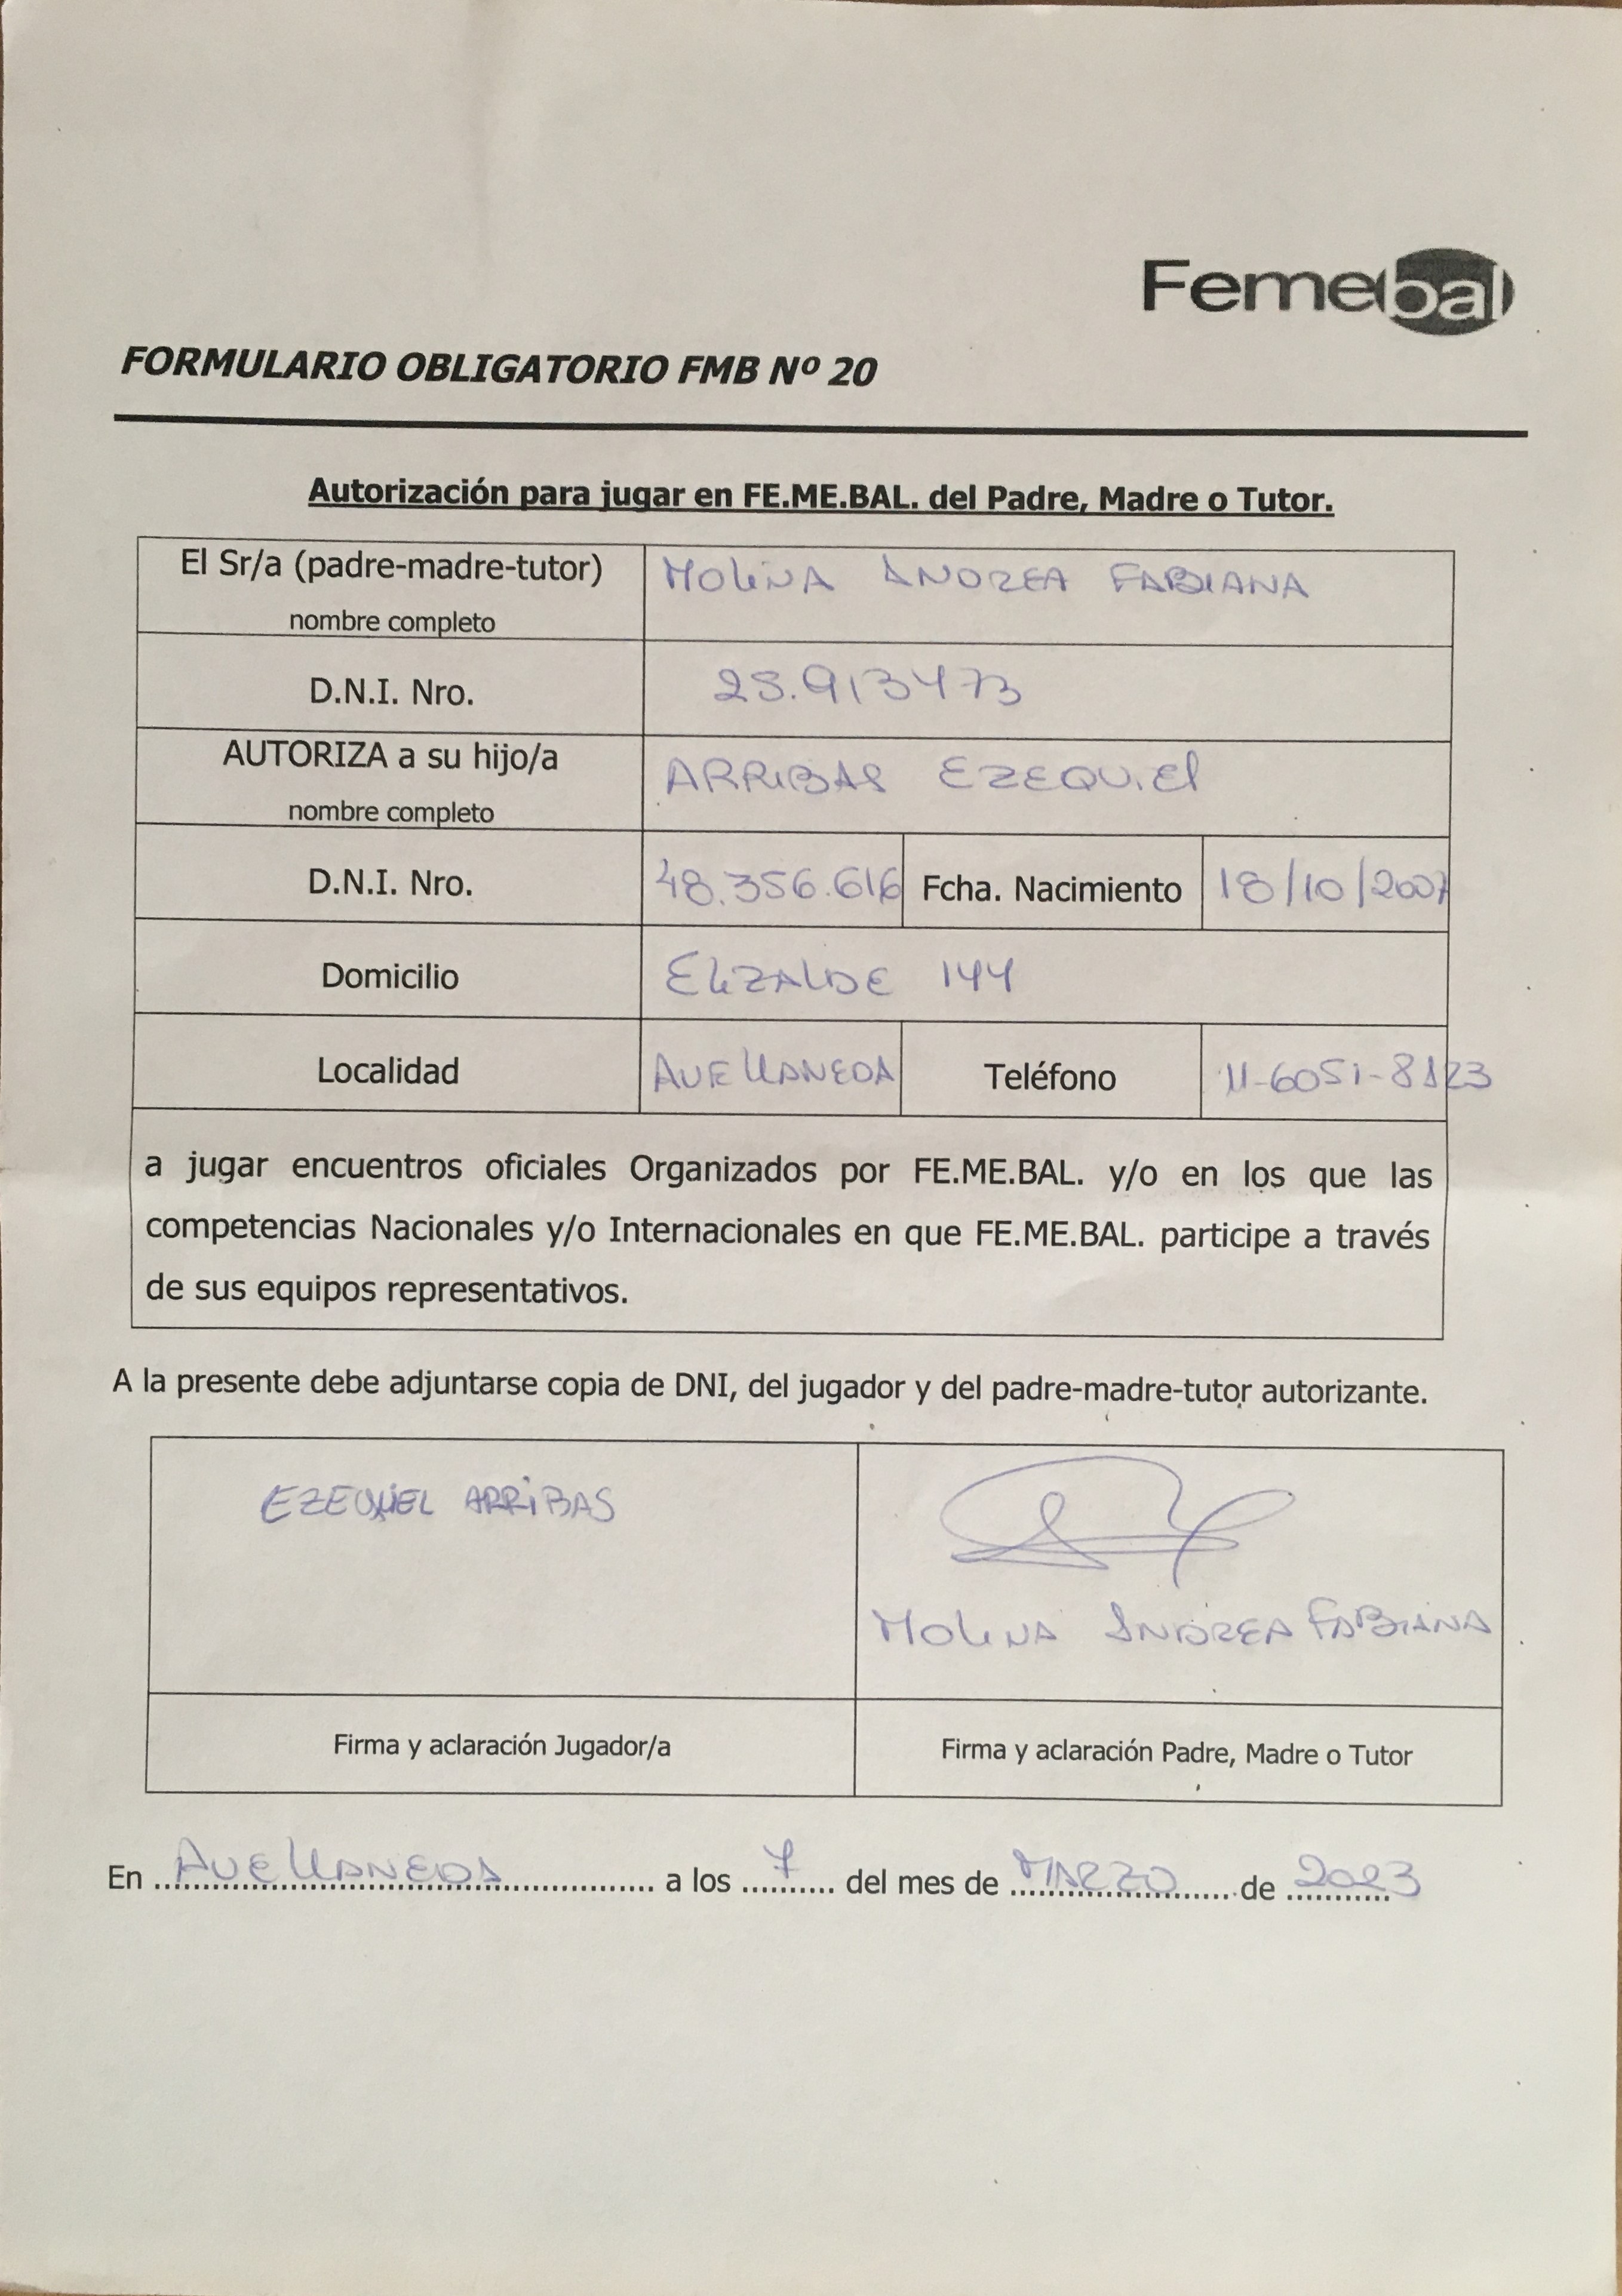 Femebal
FORMULARIO OBLIGATORIO FMB Nº 20
Autorización para jugar en FE.ME.BAL. del Padre, Madre o Tutor.
El Sr/a (padre-madre-tutor) MOLINA ANDREA FABIANA
nombre completo
D.N.I. Nro. 25.913473
AUTORIZA a su hijo/a ARRIBAS EZEQUIEl
nombre completo
D.N.I. Nro. 48.356.616 Fcha. Nacimiento 18/10/2007
Domicilio ELIZALDE 144
Localidad AVELLANEDA Teléfono 11-6051-8123
a jugar encuentros oficiales Organizados por FE.ME.BAL. y/o en los que las
competencias Nacionales y/o Internacionales en que FE.ME.BAL. participe a través
de sus equipos representativos.
A la presente debe adjuntarse copia de DNI, del jugador y del padre-madre-tutor autorizante.
EZEQUIEL ARRIBAS
MOLINA ANDREA FABIANA
Firma y aclaración Jugador/a Firma y aclaración Padre, Madre o Tutor
En AVELLANEDA a los 7 del mes de MARZO de 2023